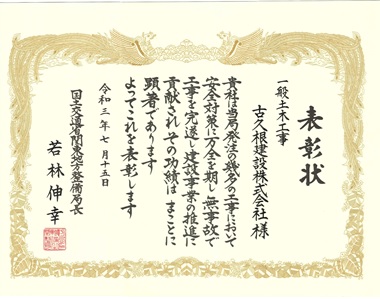 表彰状
一般土木工事
古久根建設株式会社様
貴社は当局発注の幾多の工事において
安全対策に万全を期し無事故で
工事を完遂し建設事業の推進に
貢献されその功績はまことに
顕著であります
よってこれを表彰します
令和三年七月十五日
国土交通省関東地方整備局長
若林伸幸